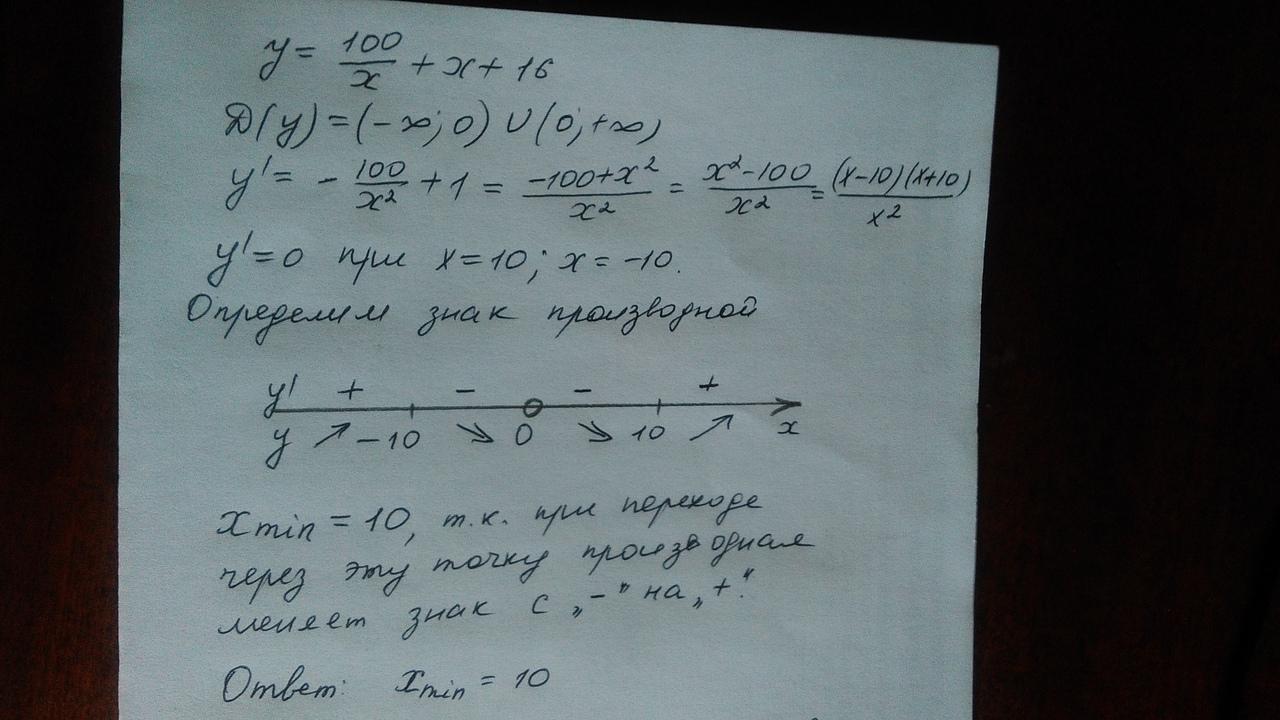 y = 100/x + x + 16
D(y) = (-∞; 0) ∪ (0; +∞)
y' = - 100/x² + 1 = (-100+x²)/x² = (x²-100)/x² = (x-10)(x+10)/x²
y' = 0 при x = 10; x = -10.
Определим знак производной
y' + - - +
y ↗ -10 ↘ 0 ↘ 10 ↗ x
xmin = 10, т.к. при переходе
через эту точку производная
меняет знак с „-" на „+".
Ответ: xmin = 10